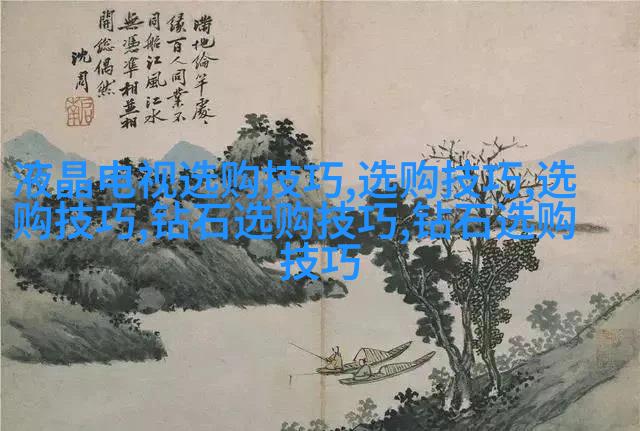 滿地綸竿處〻
緣百人同業不
同船江風江水
無憑準相並相
開總偶然
沈周
液晶电视选购技巧,选购技巧,选
购技巧,钻石选购技巧,钻石选购
技巧